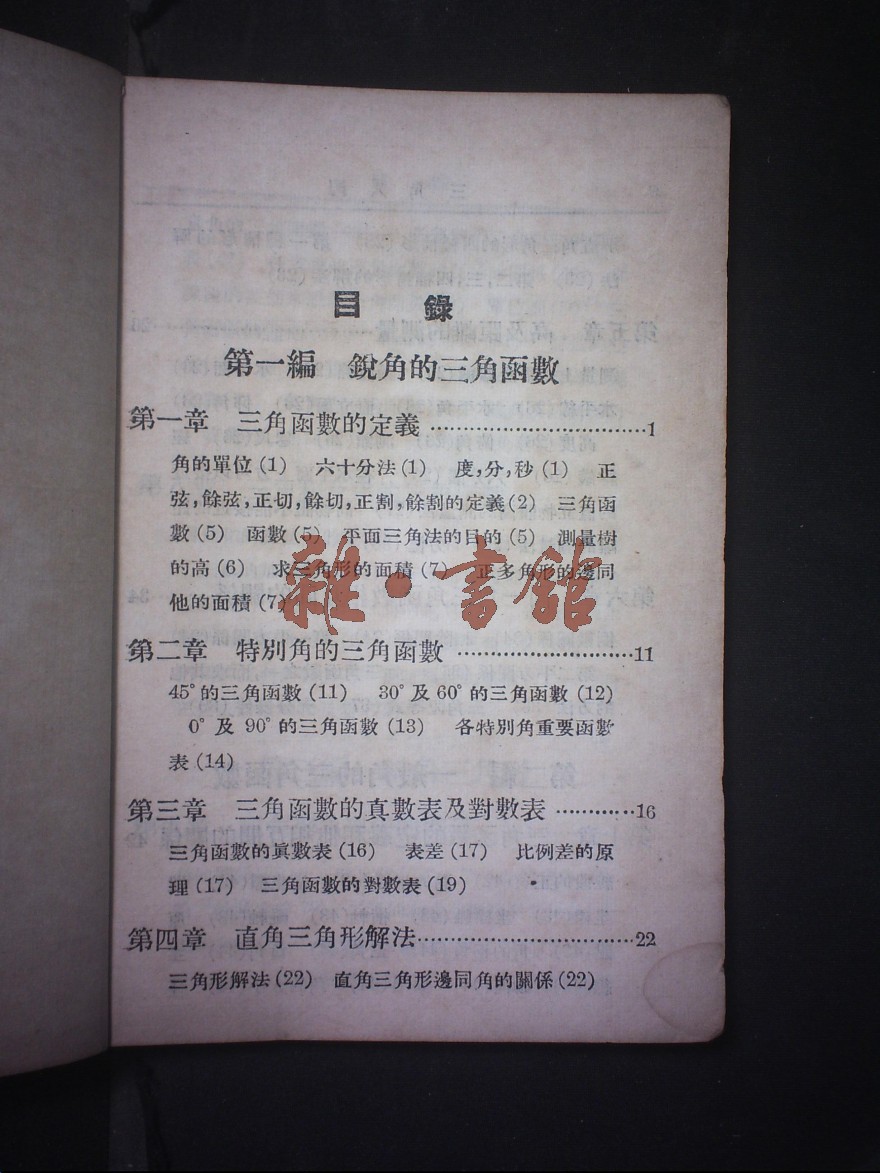 目錄
第一編 銳角的三角函數
第一章 三角函數的定義 ……………………………1
角的單位(1) 六十分法(1) 度,分,秒(1) 正
弦,餘弦,正切,餘切,正割,餘割的定義(2) 三角函
數(5) 函數(5) 平面三角法的目的(5) 測量樹
的高(6) 求三角形的面積(7) 正多角形的邊同
他的面積(7)
雜·書館
第二章 特別角的三角函數 ………………………11
45°的三角函數(11) 30°及60°的三角函數(12)
0°及90°的三角函數(13) 各特別角重要函數
表(14)
第三章 三角函數的真數表及對數表 …………16
三角函數的眞數表(16) 表差(17) 比例差的原
理(17) 三角函數的對數表(19)
第四章 直角三角形解法……………………………22
三角形解法(22) 直角三角形邊同角的關係(22)